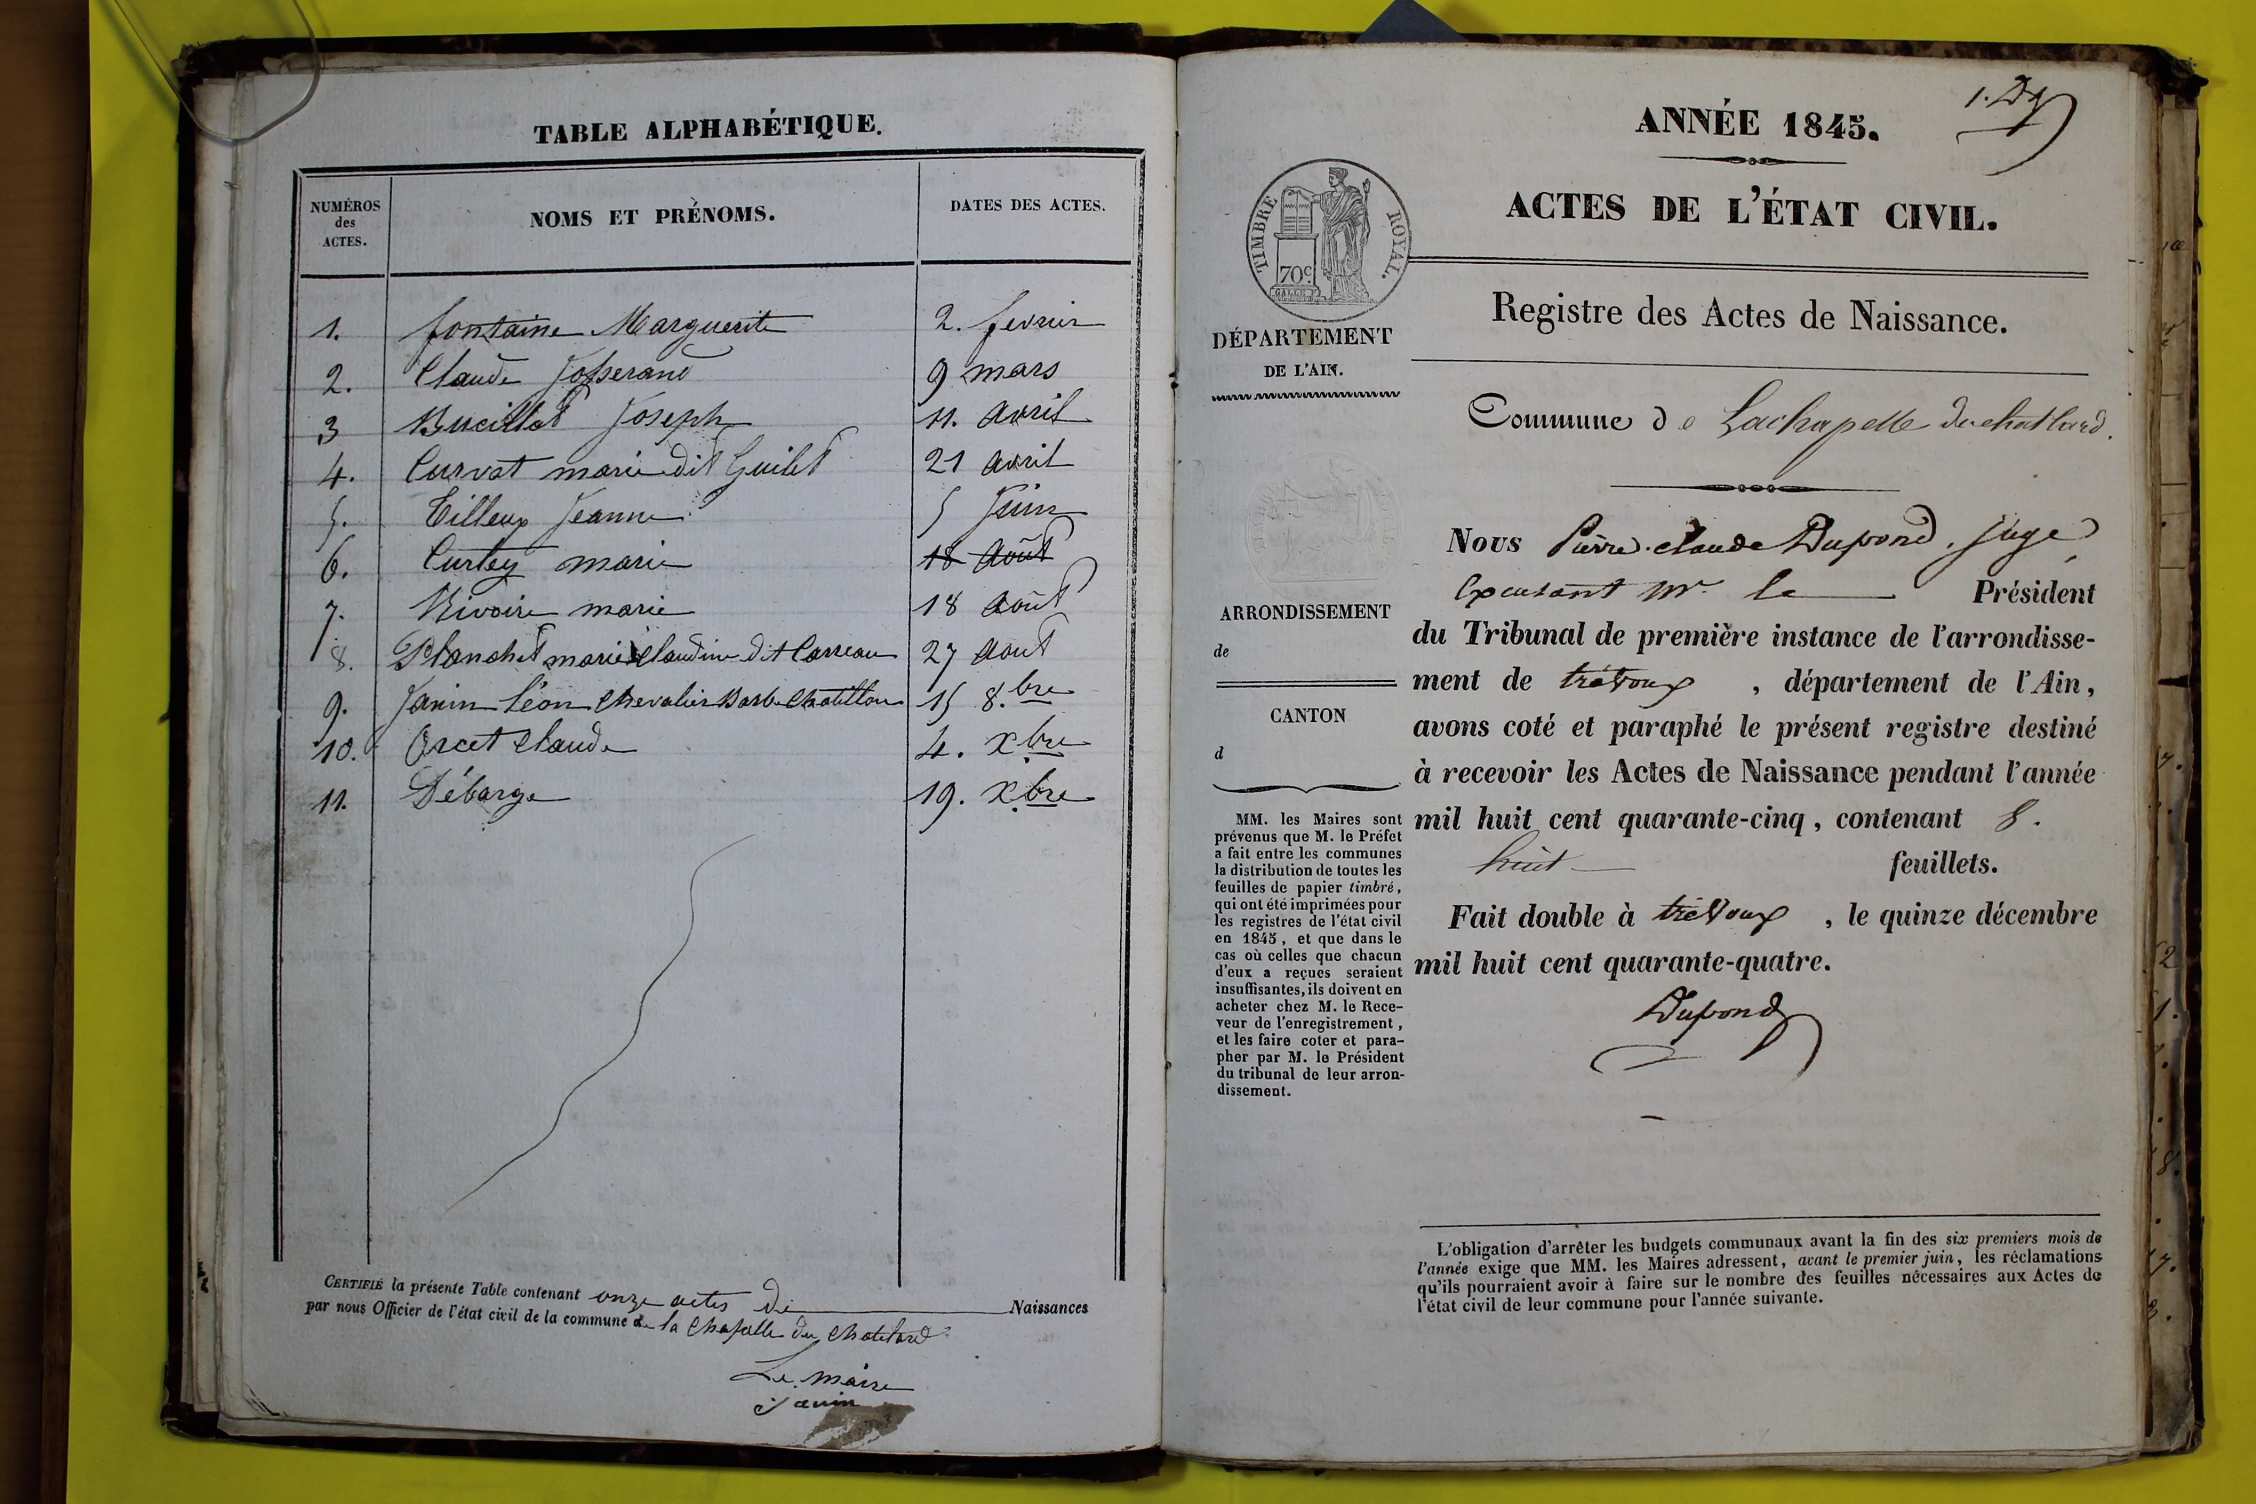 TABLE ALPHABÉTIQUE.
NUMÉROS
des
ACTES.
NOMS ET PRÉNOMS.
DATES DES ACTES.
1. fontaine Marguerite 2. fevrier
2. Claude Josserand 9 mars
3 Bucillot Joseph 11. avril
4. Curvat marie dit Guilet 21 avril
5. Tilleux Jeanne 5 Juin
6. Curtey marie 18 Août
7. Rivoire marie 18 Août
8. Planchet marie Claudine dit Carreau 27 Aout
9. Janin Léon Chevalier Chatillon 15 8.bre
10. Orcet Claude 4. Xbre
11. Débarge 19. Xbre
CERTIFIÉ la présente Table contenant onze actes de Naissances
par nous Officier de l'état civil de la commune de la Chapelle du Chatelard
Le Maire
Janin
1. D
ANNÉE 1845.
ACTES DE L'ÉTAT CIVIL.
TIMBRE ROYAL.
70c
Registre des Actes de Naissance.
DÉPARTEMENT
DE L'AIN.
Commune de Lachapelle du chatlard.
Nous Pierre-claude Dupond, juge
Excusant Mr. le Président
ARRONDISSEMENT
de
CANTON
d
du Tribunal de première instance de l'arrondisse-
ment de trévoux, département de l'Ain,
avons coté et paraphé le présent registre destiné
à recevoir les Actes de Naissance pendant l'année
mil huit cent quarante-cinq, contenant 8.
huit feuillets.
Fait double à trévoux, le quinze décembre
mil huit cent quarante-quatre.
Dupond
MM. les Maires sont
prévenus que M. le Préfet
a fait entre les communes
la distribution de toutes les
feuilles de papier timbré,
qui ont été imprimées pour
les registres de l'état civil
en 1845, et que dans le
cas où celles que chacun
d'eux a reçues seraient
insuffisantes, ils doivent en
acheter chez M. le Rece-
veur de l'enregistrement,
et les faire coter et para-
pher par M. le Président
du tribunal de leur arron-
dissement.
L'obligation d'arrêter les budgets communaux avant la fin des six premiers mois de
l'année exige que MM. les Maires adressent, avant le premier juin, les réclamations
qu'ils pourraient avoir à faire sur le nombre des feuilles nécessaires aux Actes de
l'état civil de leur commune pour l'année suivante.